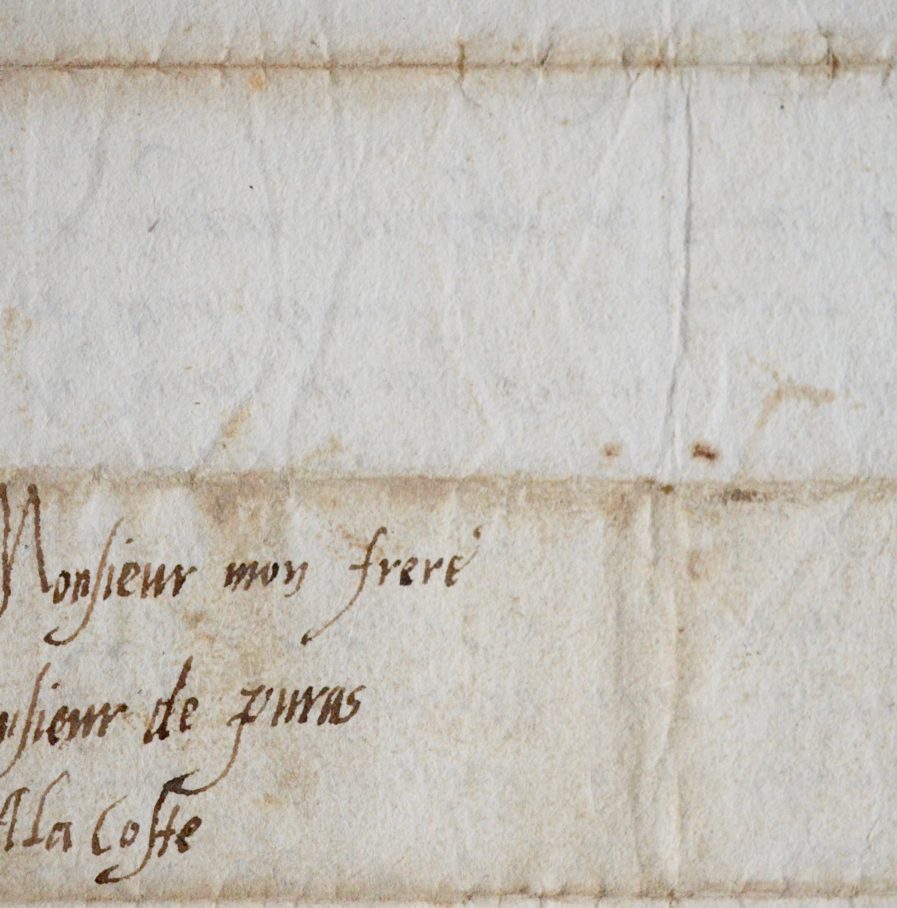 Monsieur mon frere
nsieur de puras
A la Coste